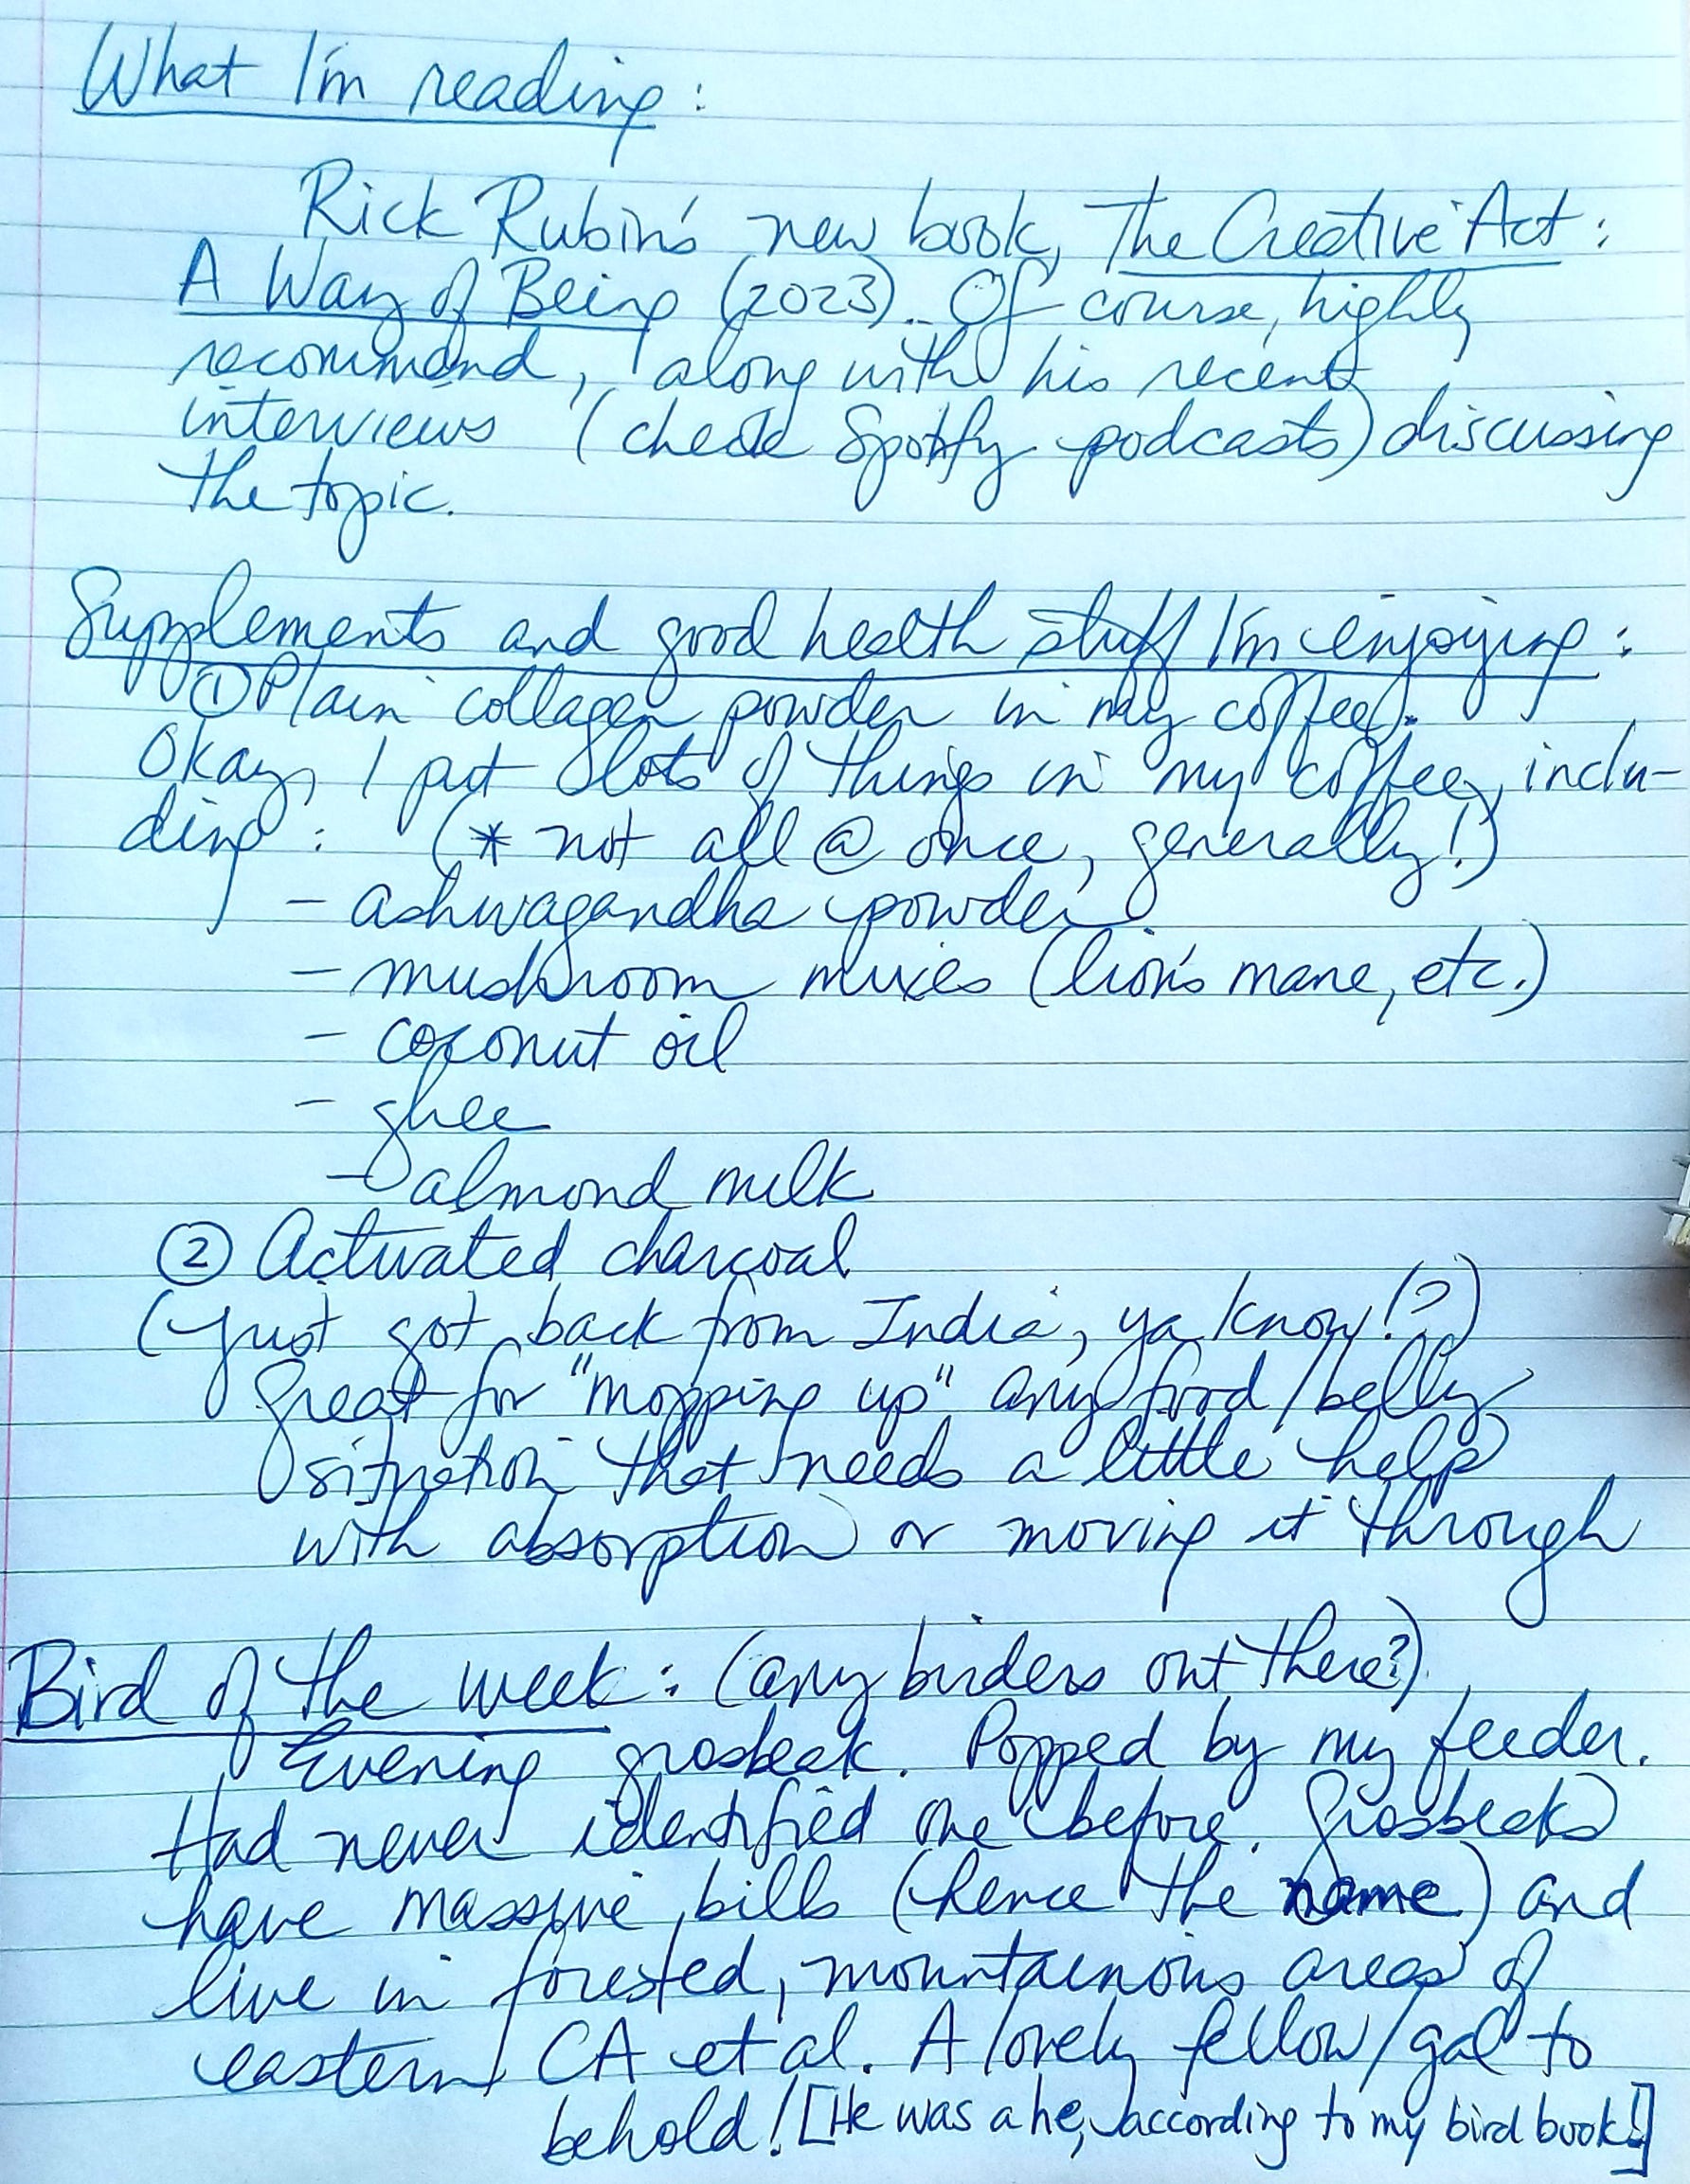 What I'm reading:
Rick Rubin's new book, The Creative Act:
A Way of Being (2023). Of course, highly
recommend, along with his recent
interviews (check Spotify podcasts) discussing
the topic.
Supplements and good health stuff I'm enjoying:
① Plain collagen powder in my coffee.
Okay, I put lots of things in my coffee, inclu-
ding: (* not all @ once, generally!)
- ashwagandha powder
- mushroom mixes (lion's mane, etc.)
- coconut oil
- ghee
- almond milk
② Activated charcoal
(just got back from India, ya know!?)
Great for "mopping up" any food/belly
situation that needs a little help
with absorption or moving it through
Bird of the week: (any birders out there?)
Evening grosbeak. Popped by my feeder.
Had never identified one before. Grosbeaks
have massive bills (hence the name) and
live in forested, mountainous areas of
eastern CA et al. A lovely fellow/gal to
behold! [He was a he, according to my bird book!]